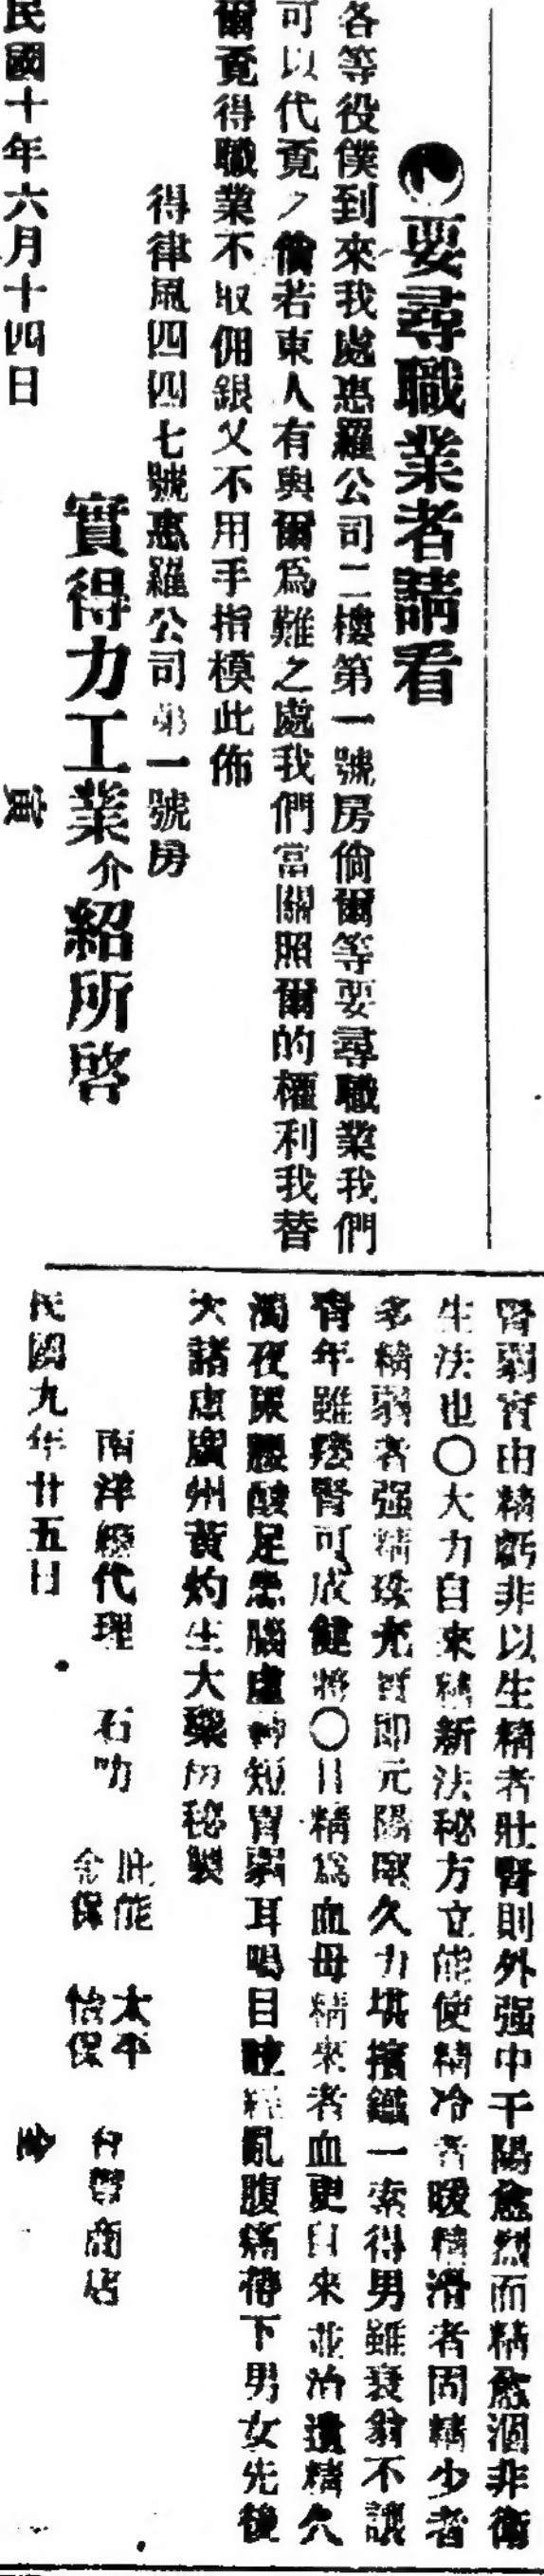 要尋職業者請看
各等役僕到來我處惠羅公司二樓第一號房倘爾等要尋職業我們
可以代覓倘若東人有與爾爲難之處我們當關照爾的權利我替
爾覓得職業不取佣銀又不用手指模此佈
得律風四四七號惠羅公司第一號房
實得力工業介紹所啓
民國十年六月十四日
腎弱實由精虧非以生精者壯腎則外强中干陽愈烈而精愈涸非衛
生法也〇大力自來精新法秘方立能使精冷者暖精滑者固精少者
多精弱者强精充腎即元陽久力堪擯鐵一索得男雖衰翁不讓
青年雖痿腎可成健將〇且精爲血母精來者血更自來並治遺精久
濁夜尿腰酸足腦虛神短胃弱耳鳴目眩經亂腹痛帶下男女先後
天諸虛廣州黃灼生大藥房秘製
南洋總代理 石叻 庇能 金保 太平 怡保 各營商店
民國九年廿五日